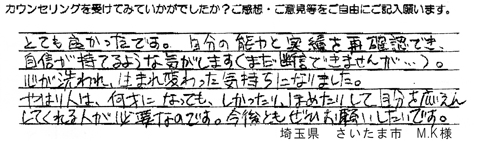 カウンセリングを受けてみていかがでしたか？ご感想・ご意見等をご自由にご記入願います。
とても良かったです。自分の能力と実績を再確認でき、
自信が持てるような気がします（まだ断信できませんが…）。
心が洗われ、生まれ変わった気持ちになりました。
やはり人は、何才になっても、しかったり、ほめたりして自分を応えん
してくれる人が必要なのです。今後ともぜひお願いしたいです。
埼玉県　さいたま市　M.K様